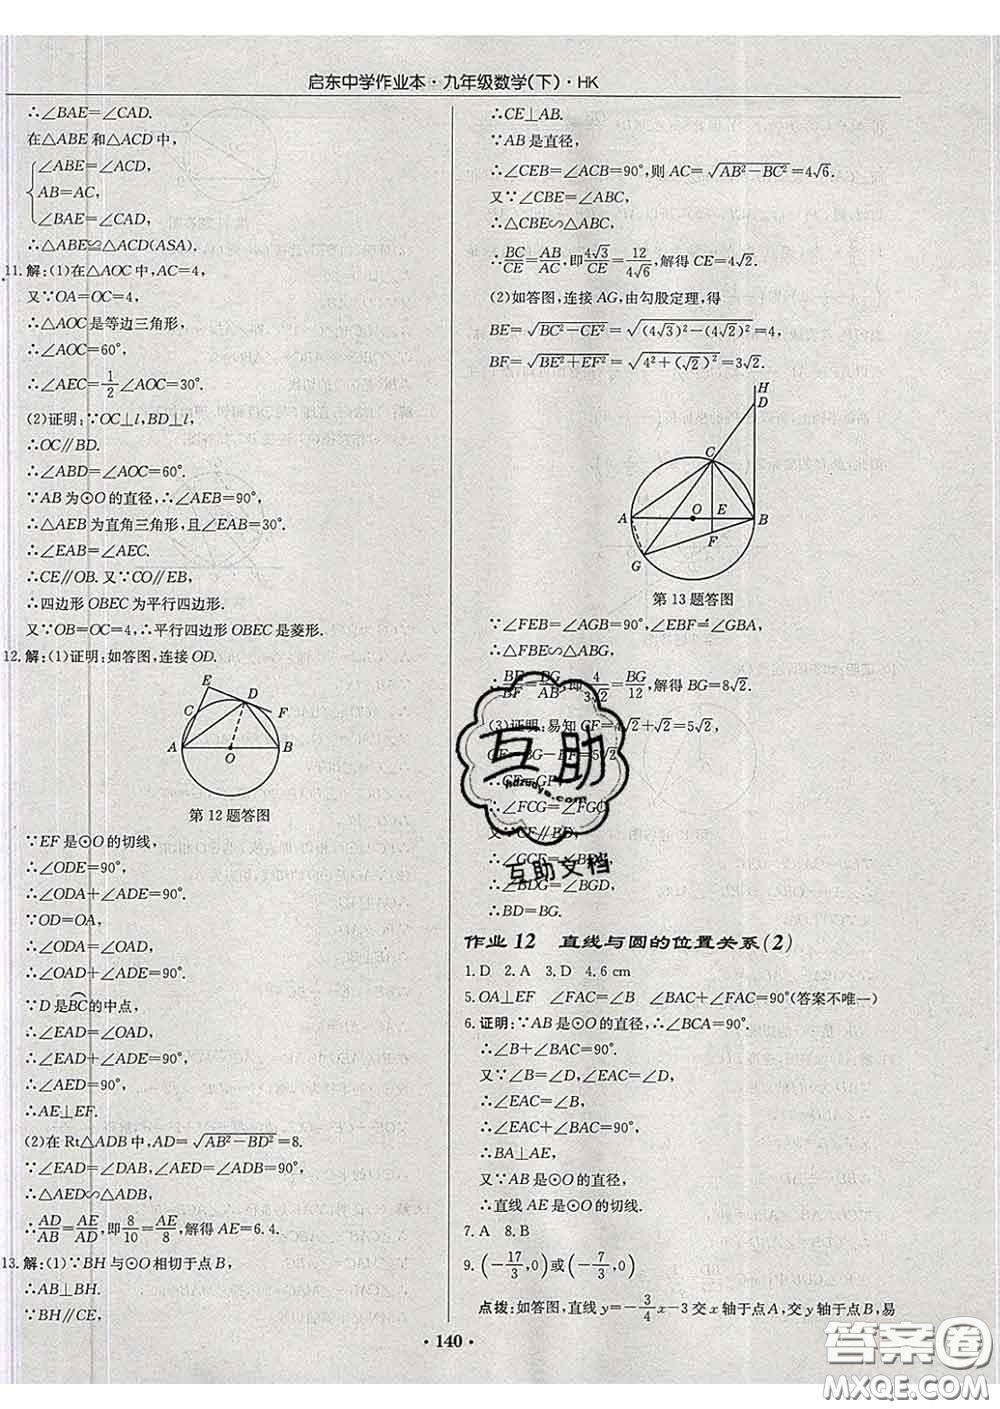 启东中学作业本·九年级数学(下)·HK
∴∠BAE=∠CAD.
在△ABE和△ACD中,
∠ABE=∠ACD,
AB=AC,
∠BAE=∠CAD,
∴△ABE≌△ACD(ASA).
11.解:(1)在△AOC中,AC=4,
又∵OA=OC=4,
∴△AOC是等边三角形,
∴∠AOC=60°,
∴∠AEC=1/2∠AOC=30°.
(2)证明:∵OC⊥l,BD⊥l,
∴OC∥BD.
∴∠ABD=∠AOC=60°.
∵AB为⊙O的直径,∴∠AEB=90°,
∴△AEB为直角三角形,且∠EAB=30°.
∴∠EAB=∠AEC.
∴CE∥OB.又∵CO∥EB,
∴四边形OBEC为平行四边形.
又∵OB=OC=4,∴平行四边形OBEC是菱形.
12.解:(1)证明:如答图,连接OD.
E
D
C
F
A
O
B
第12题答图
∵EF是⊙O的切线,
∴∠ODE=90°,
∴∠ODA+∠ADE=90°,
∵OD=OA,
∴∠OAD=∠ODA,
∴∠OAD+∠ADE=90°,
∵D是BC的中点,
∴∠EAD=∠OAD,
∴∠EAD+∠ADE=90°,
∴∠AED=90°;
∴AE⊥EF.
(2)在Rt△ADB中,AD=√(AB²-BD²)=8.
∵∠EAD=∠DAB,∠AED=∠ADB=90°,
∴△AED∽△ADB,
∴AD/AB=AE/AD,即8/10=AE/8,解得AE=6.4.
13.解:(1)∵BH与⊙O相切于点B,
∴AB⊥BH.
∵BH∥CE,
∴CE⊥AB.
∵AB是直径,
∴∠CEB=∠ACB=90°,则AC=√(AB²-BC²)=4√6.
又∵∠CBE=∠ABC,
∴△CBE∽△ABC,
∴BC/CE=AB/AC,即4√3/CE=12/4√6,解得CE=4√2.
(2)如答图,连接AG,由勾股定理,得
BE=√(BC²-CE²)=√((4√3)²-(4√2)²)=4,
BF=√(BE²+EF²)=√(4²+(√2)²)=3√2.
H
D
C
A
O
E
B
F
G
第13题答图
∵∠FEB=∠AGB=90°,∠EBF=∠GBA,
∴△FBE∽△ABG,
∴BE/BF=BG/AB,即4/3√2=BG/12,解得BG=8√2.
(3)证明:易知CF=4√2+√2=5√2,
GF=BG-BF=5√2,
∴CF=GF,
∴∠FCG=∠FGC,
又∵CF∥BD,
∴∠GCF=∠BDG,
∴∠BDG=∠BGD,
∴BD=BG.
作业12 直线与圆的位置关系(2)
1.D 2.A 3.D 4.6 cm
5.OA⊥EF ∠FAC=∠B ∠BAC+∠FAC=90°(答案不唯一)
6.证明:∵AB是⊙O的直径,∴∠BCA=90°.
∴∠B+∠BAC=90°.
又∵∠B=∠D,∠EAC=∠D,
∴∠EAC=∠B,
∴∠EAC+∠BAC=90°,
∴BA⊥AE,
又∵AB是⊙O的直径,
∴直线AE是⊙O的切线.
7.A 8.B
9.(-17/3,0)或(-7/3,0)
点拨:如答图,直线y=-3/4x-3交x轴于点A,交y轴于点B,易
·140·
互助
hdzuoye.com
互助文档
答案圈
MXQE.COM